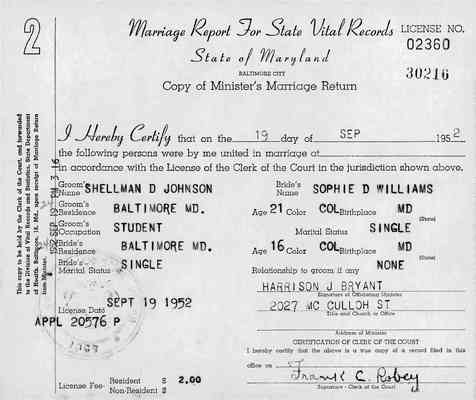 2
Marriage Report For State Vital Records
LICENSE NO.
02360
State of Maryland
BALTIMORE CITY
30216
Copy of Minister's Marriage Return
I Hereby Certify that on the 19 day of SEP 1952
the following persons were by me united in marriage at
in accordance with the License of the Clerk of the Court in the jurisdiction shown above.
Groom's Name SHELLMAN D JOHNSON Bride's Name SOPHIE D WILLIAMS
Groom's Residence BALTIMORE MD. Age 21 Color COL Birthplace MD
(State)
Groom's Occupation STUDENT Marital Status SINGLE
Bride's Residence BALTIMORE MD. Age 16 Color COL Birthplace MD
(State)
Bride's Marital Status SINGLE Relationship to groom if any NONE
HARRISON J BRYANT
Signature of Officiating Minister
SEPT 19 1952
License Date
2027 MC CULLOH ST
Title and Church or Office
APPL 20576 P
Address of Minister
CERTIFICATION OF CLERK OF THE COURT
I hereby certify that the above is a true copy of a record filed in this
office on
License Fee- Resident $ 2.00
Non-Resident $
Frank C. Robey
Signature - Clerk of the Court
This copy to be held by the Clerk of the Court, and forwarded
to the Division of Vital Records and Statistics, State Department
of Health, Baltimore 18, Md., upon receipt of Marriage Return
from Minister.